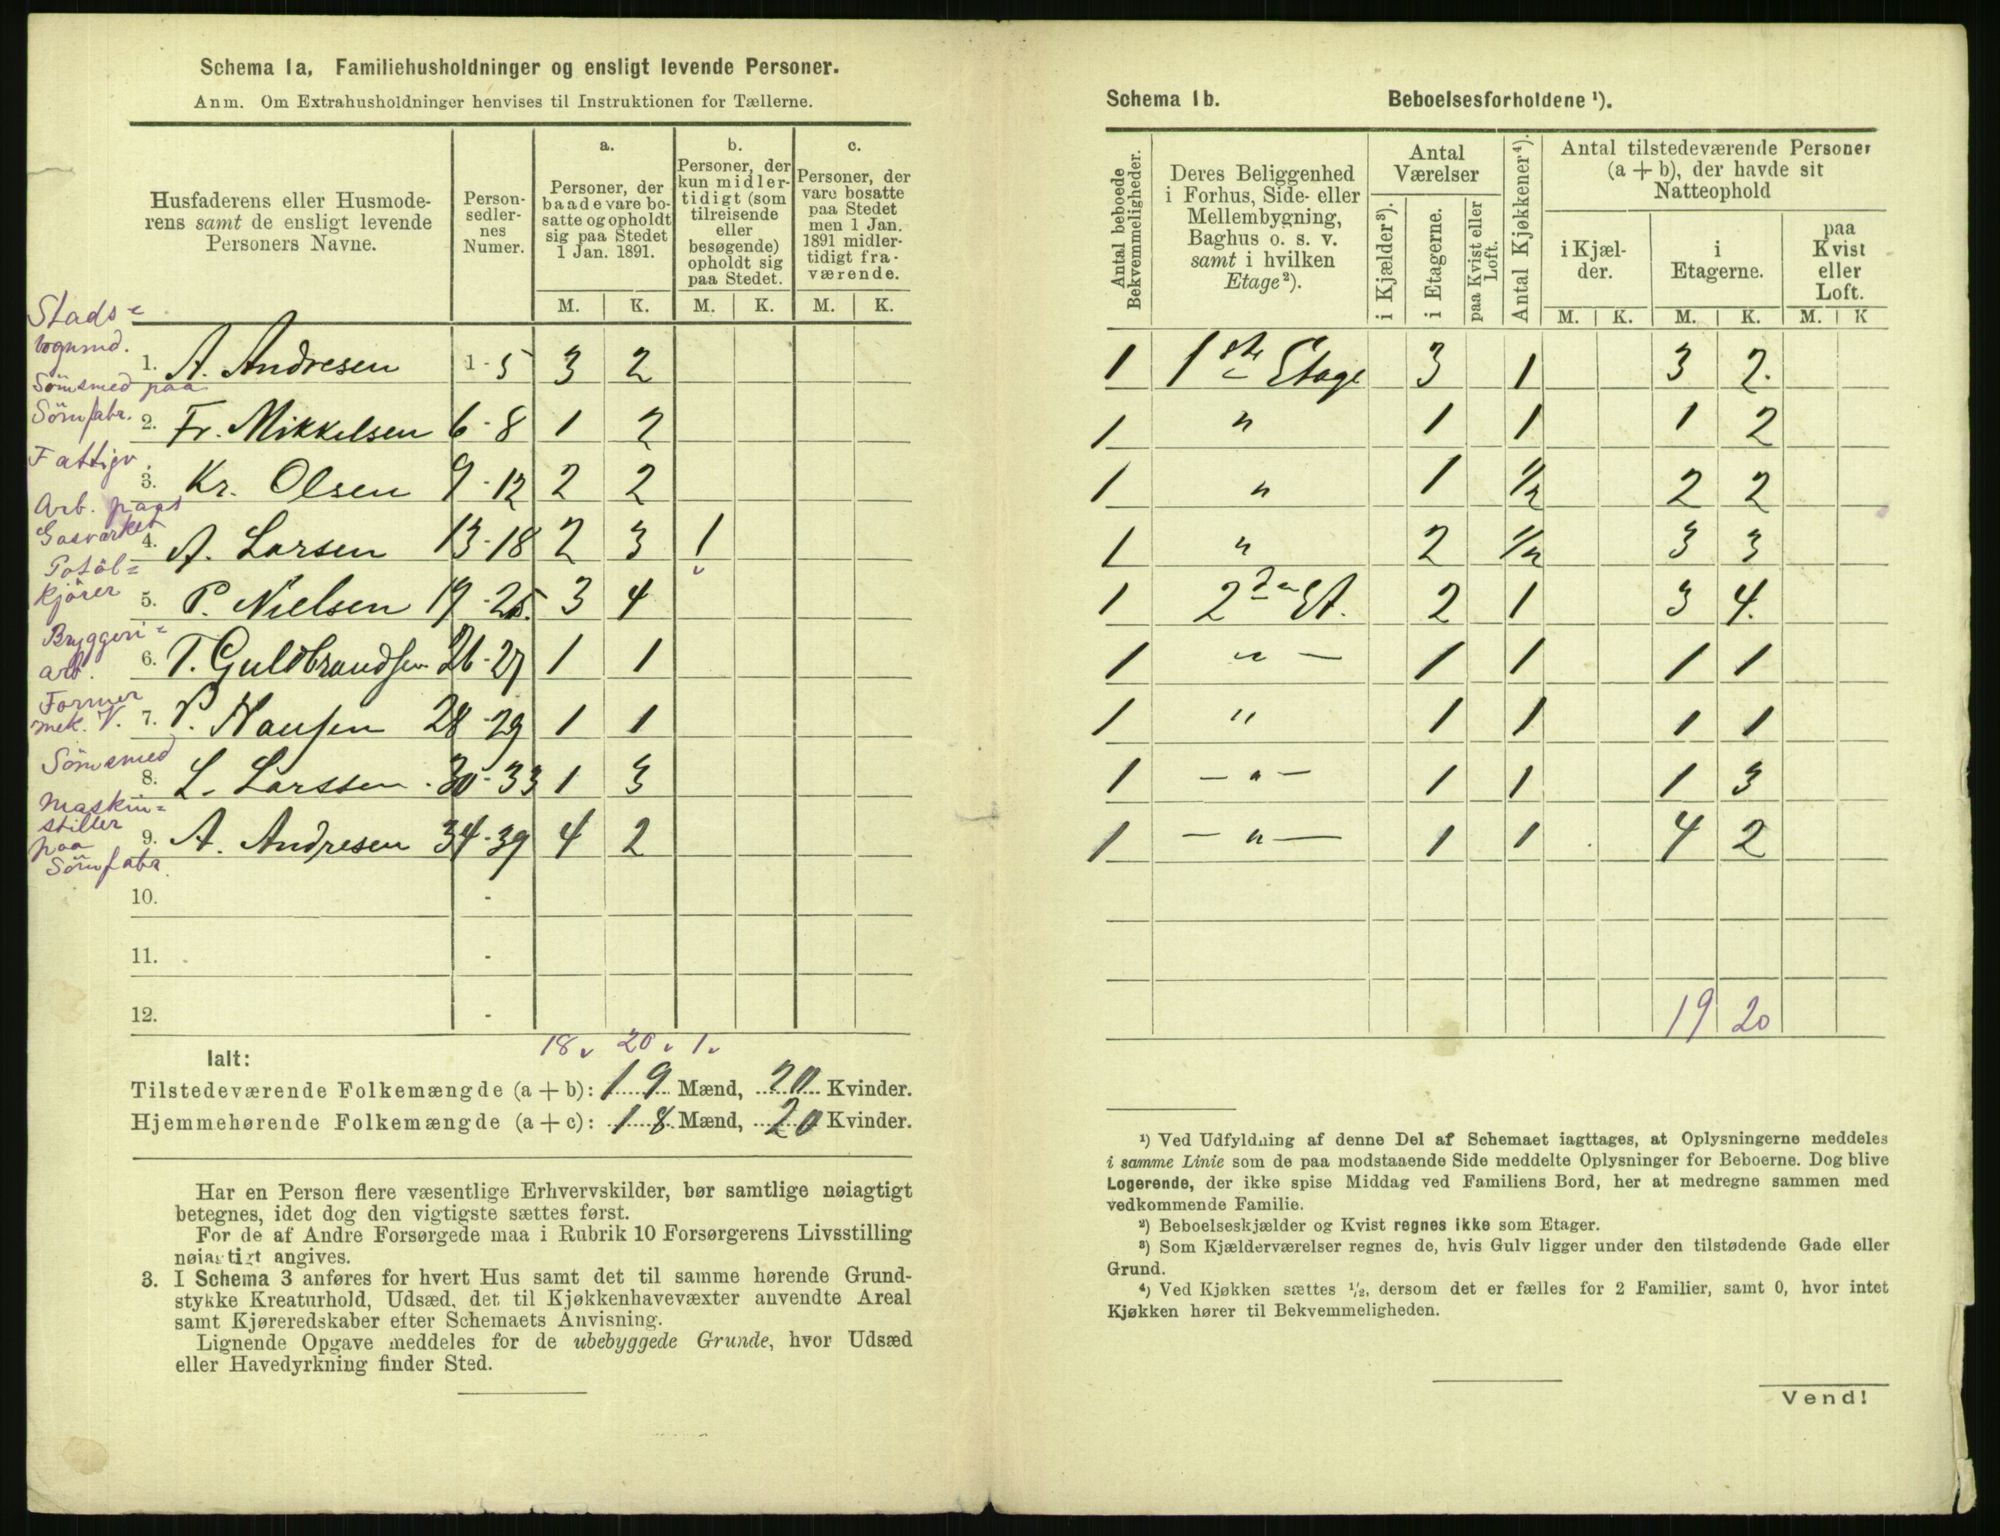 Schema 1a, Familiehusholdninger og ensligt levende Personer.
Anm. Om Extrahusholdninger henvises til Instruktionen for Tællerne.
Husfaderens eller Husmoderens samt de ensligt levende Personers Navne.
Personsedlernes Numer.
a.
Personer, der baade vare bosatte og opholdt sig paa Stedet 1 Jan. 1891.
b.
Personer, der kun midlertidigt (som tilreisende eller besøgende) opholdt sig paa Stedet.
c.
Personer, der vare bosatte paa Stedet men 1 Jan. 1891 midlertidigt fraværende.
M. K. M. K. M. K.
Stads=
vognmd.
1. A. Andresen 1-5 3 2
Sömsmed paa
Sömfabr.
2. Fr. Mikkelsen 6-8 1 2
Fattigv.
3. Kr. Olsen 9-12 2 2
Arb. paa
Gasværket
4. A. Larsen 13-18 2 3 1
kjörer
5. P. Nielsen 19-25 3 4
Bryggeri=
arb.
6. T. Guldbrandsen 26-27 1 1
Former
mek. V.
7. P. Hansen 28-29 1 1
Sömsmed
8. L. Larssen 30-33 1 3
Maskin=
stiller
paa
Sömfabr.
9. A. Andresen 34-39 4 2
10. -
11. -
12. -
18. 20. 1.
Ialt:
Tilstedeværende Folkemængde (a + b): 19 Mænd, 20 Kvinder.
Hjemmehørende Folkemængde (a + c): 18 Mænd, 20 Kvinder.
Har en Person flere væsentlige Erhvervskilder, bør samtlige nøiagtigt
betegnes, idet dog den vigtigste sættes først.
For de af Andre Forsørgede maa i Rubrik 10 Forsørgerens Livsstilling
nøiagtigt angives.
3. I Schema 3 anføres for hvert Hus samt det til samme hørende Grund-
stykke Kreaturhold, Udsæd, det til Kjøkkenhavevæxter anvendte Areal
samt Kjøreredskaber efter Schemaets Anvisning.
Lignende Opgave meddeles for de ubebyggede Grunde, hvor Udsæd
eller Havedyrkning finder Sted.
Schema 1b. Beboelsesforholdene ¹).
Antal beboede Bekvemmeligheder.
Deres Beliggenhed i Forhus, Side- eller Mellembygning, Baghus o. s. v. samt i hvilken Etage ²).
Antal Værelser
i Kjælder ³).
i Etagerne.
paa Kvist eller Loft.
Antal Kjøkkener ⁴).
Antal tilstedeværende Personer (a + b), der havde sit Natteophold
i Kjælder.
i Etagerne.
paa Kvist eller Loft.
M. K. M. K. M. K
1 1ste Etage 3 1 3 2.
1 " 1 1 1 2
1 " 1 1/2 2 2
1 " 2 1/2 3 3
1 2den Et. 2 1 3 4.
1 " — 1 1 1 1
1 " 1 1 1 1
1 — " — 1 1 1 3
1 — " — 1 1 4 2
19 20
¹) Ved Udfyldning af denne Del af Schemaet iagttages, at Oplysningerne meddeles
i samme Linie som de paa modstaaende Side meddelte Oplysninger for Beboerne. Dog blive
Logerende, der ikke spise Middag ved Familiens Bord, her at medregne sammen med
vedkommende Familie.
²) Beboelseskjælder og Kvist regnes ikke som Etager.
³) Som Kjælderværelser regnes de, hvis Gulv ligger under den tilstødende Gade eller
Grund.
⁴) Ved Kjøkken sættes ½, dersom det er fælles for 2 Familier, samt 0, hvor intet
Kjøkken hører til Bekvemmeligheden.
Vend!